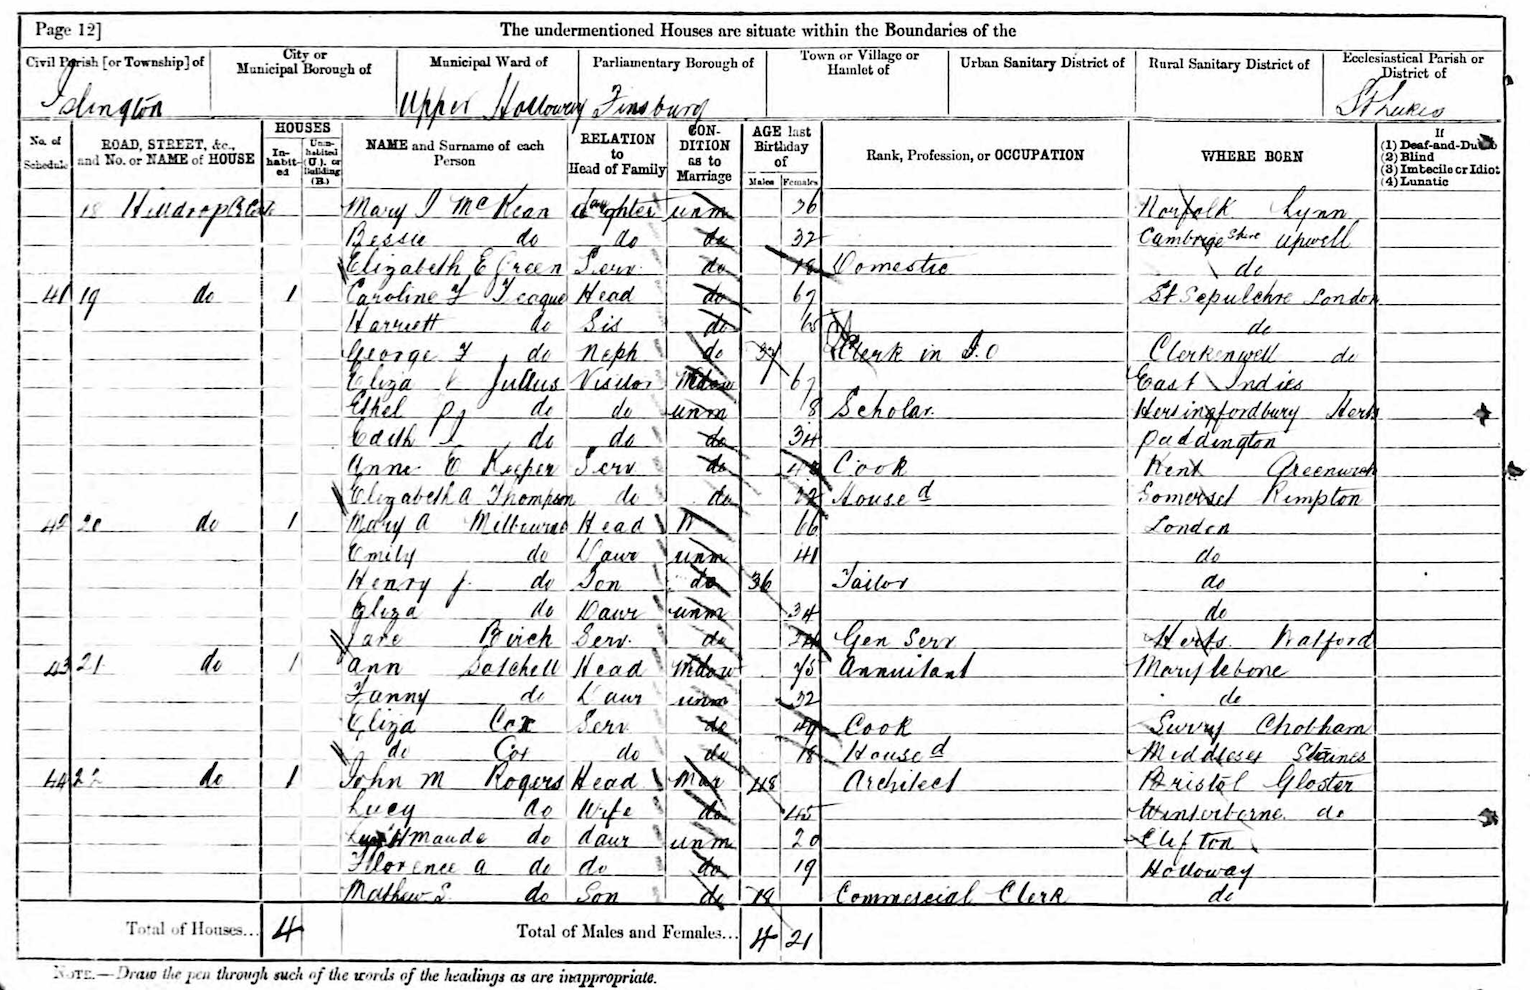 Page 12]
The undermentioned Houses are situate within the Boundaries of the
Civil Parish [or Township] of
City or Municipal Borough of
Municipal Ward of
Parliamentary Borough of
Town or Village or Hamlet of
Urban Sanitary District of
Rural Sanitary District of
Ecclesiastical Parish or District of
Islington Upper Holloway Finsburg St Lukes
No. of Schedule
ROAD, STREET, &c., and No. or NAME of HOUSE
HOUSES
In-habit-ed
Unin-habited (U.), or Building (B.)
NAME and Surname of each Person
RELATION to Head of Family
CON-DITION as to Marriage
AGE last Birthday of
Males Females
Rank, Profession, or OCCUPATION
WHERE BORN
If
(1) Deaf-and-Dumb
(2) Blind
(3) Imbecile or Idiot
(4) Lunatic
18 Mary J McKean daughter unm 36 Norfolk Lynn
Bessie do do do 32 Cambrige Shire Upwell
Elizabeth E Green Serv. do 18 Domestic do
41 19 do 1 Caroline F Teague Head do 67 St Sepulchre London
Harriett do Sis do 65 do
George F do Neph do 37 Clerk in do
Eliza Julius Visitor Widow 67 East Indies
Ethel do do unm 8 Scholar. Hertingfordbury Herts
Edith do do do 34 Paddington
Anne Kepper Serv do Cook Kent Greenwich
Elizabeth A Thompson do do 22 Housed Somerset Rimpton
42 20 do 1 Mary A Melbourne Head W 66 London
Emily do Daur unm 41 do
Henry J. do Son do 36 Tailor do
Eliza do Daur unm 34 do
Jane Birch Serv. do Gen Serv Herts. Watford
43 21 do 1 Ann Satchell Head Widow 75 Annuitant Marylebone
Fanny do Daur unm 32 do
Eliza Cox Serv do 49 Cook Surry Chobham
do Cox do do 18 Housed Middlesex Staines
44 22 do 1 John M Rogers Head Mar 48 Architect Bristol Gloster
Lucy do Wife do 45 Winterborne do
Maude do daur unm 20 Clifton
Florence A do do do 19 Holloway
Mathew S. do Son do 18 Commercial Clerk do
Total of Houses... 4
Total of Males and Females... 4 21
NOTE.—Draw the pen through such of the words of the headings as are inappropriate.